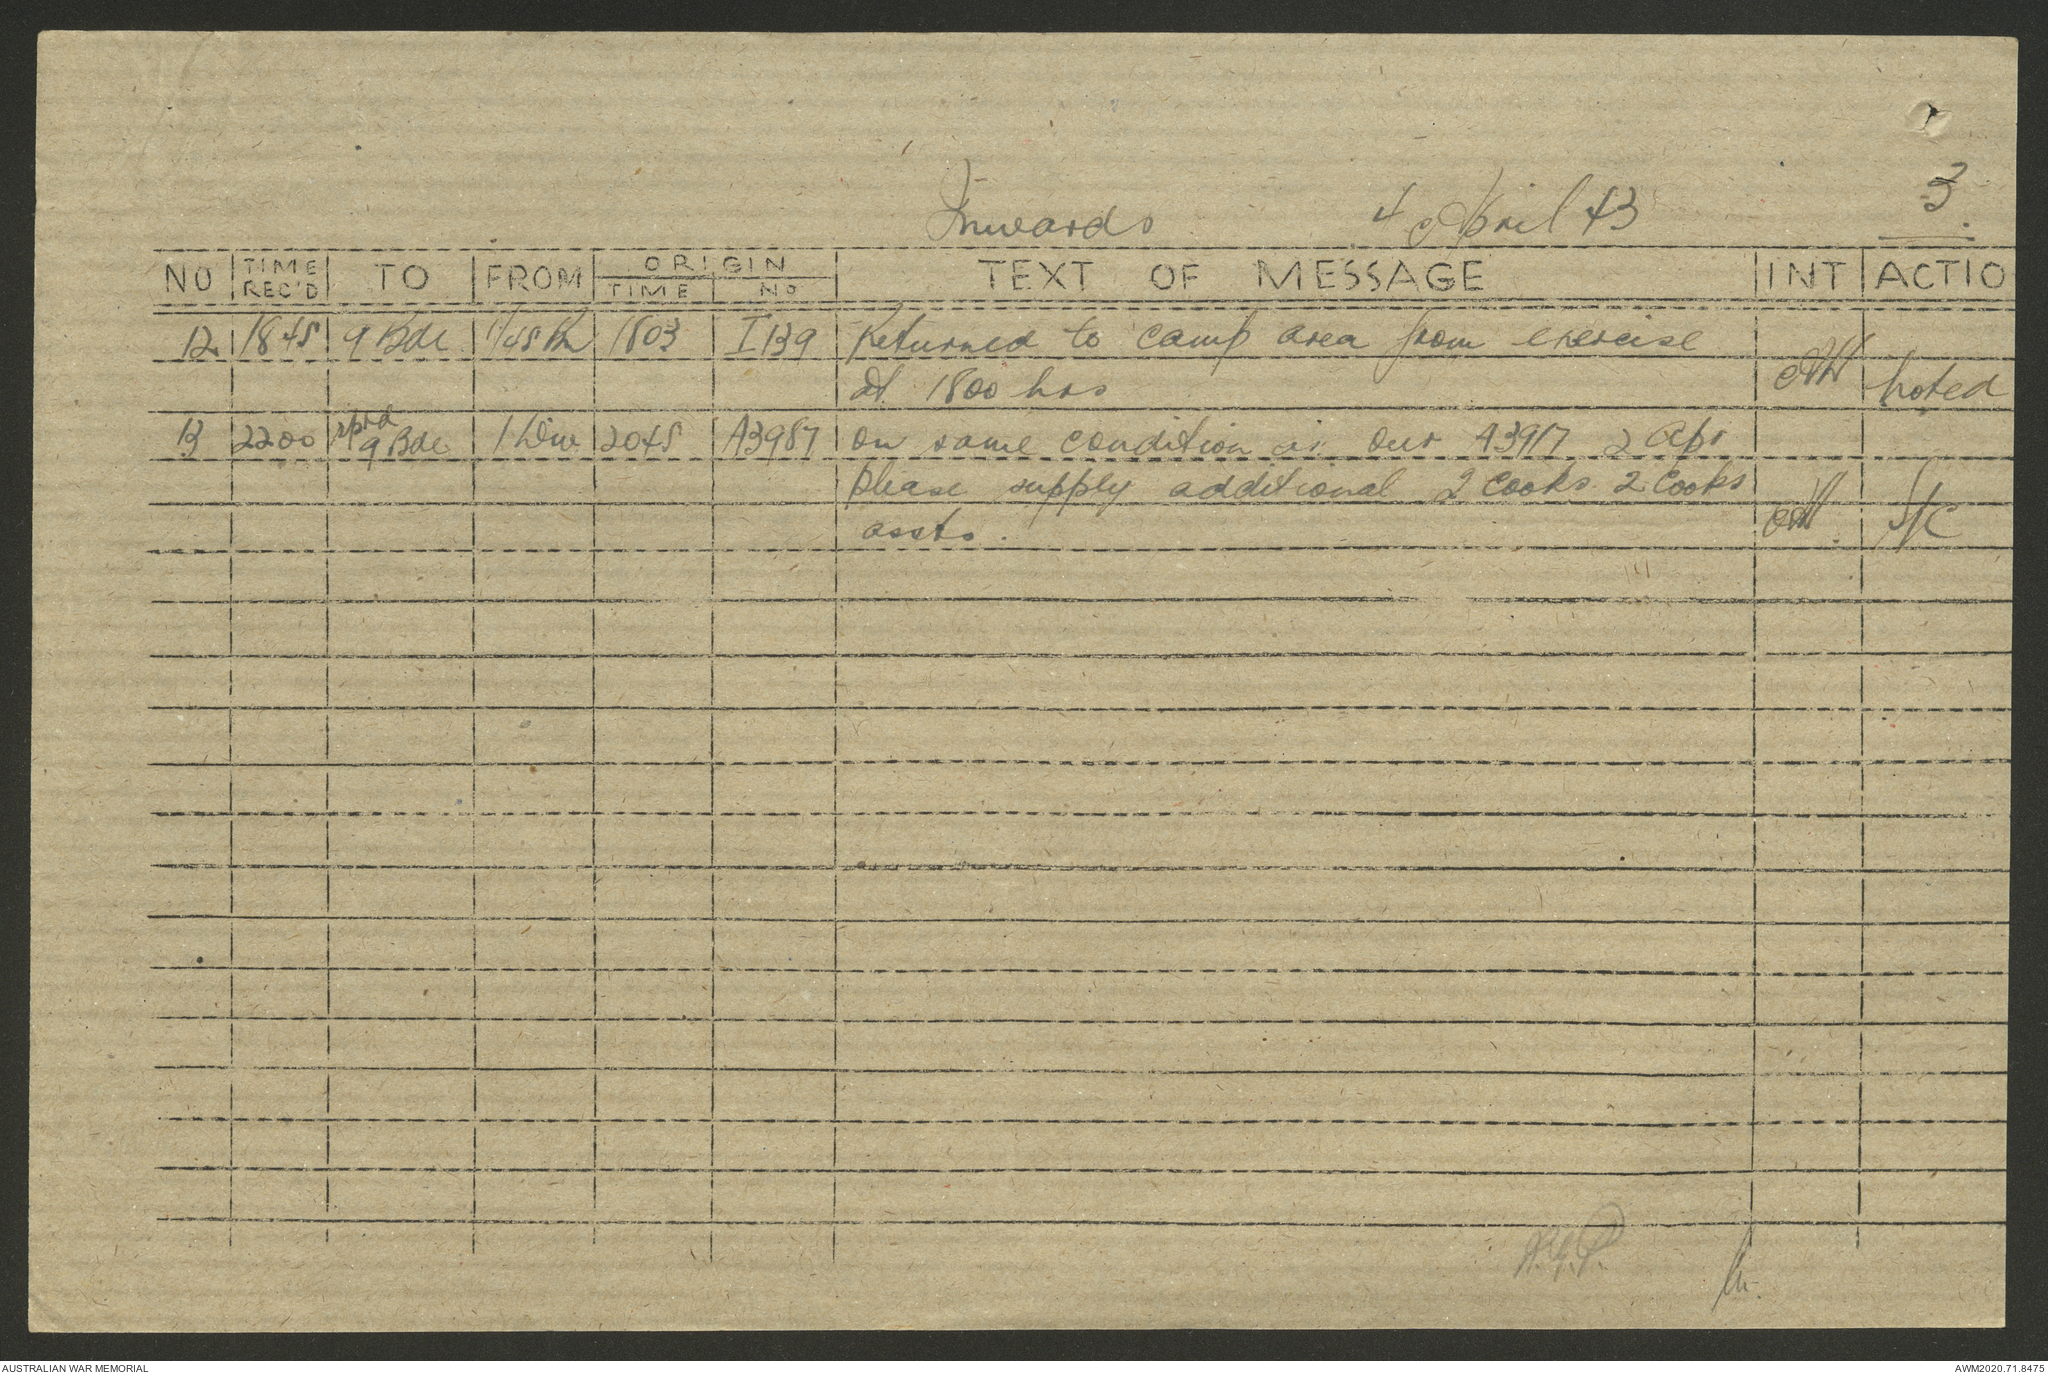 3
Inwards 4 April 43
NO TIME REC'D TO FROM ORIGIN TIME NO TEXT OF MESSAGE INT ACTIO
12 1845 9 Bde 1/45 Bn 1803 I 139 Returned to camp area from exercise
at 1800 hrs noted
13 2200 rptd 9 Bde 1 Div 2045 A3987 on same condition as our A3917 2 Apr
please supply additional 2 cooks 2 cooks
assts. S/C
AUSTRALIAN WAR MEMORIAL AWM2020.71.8475